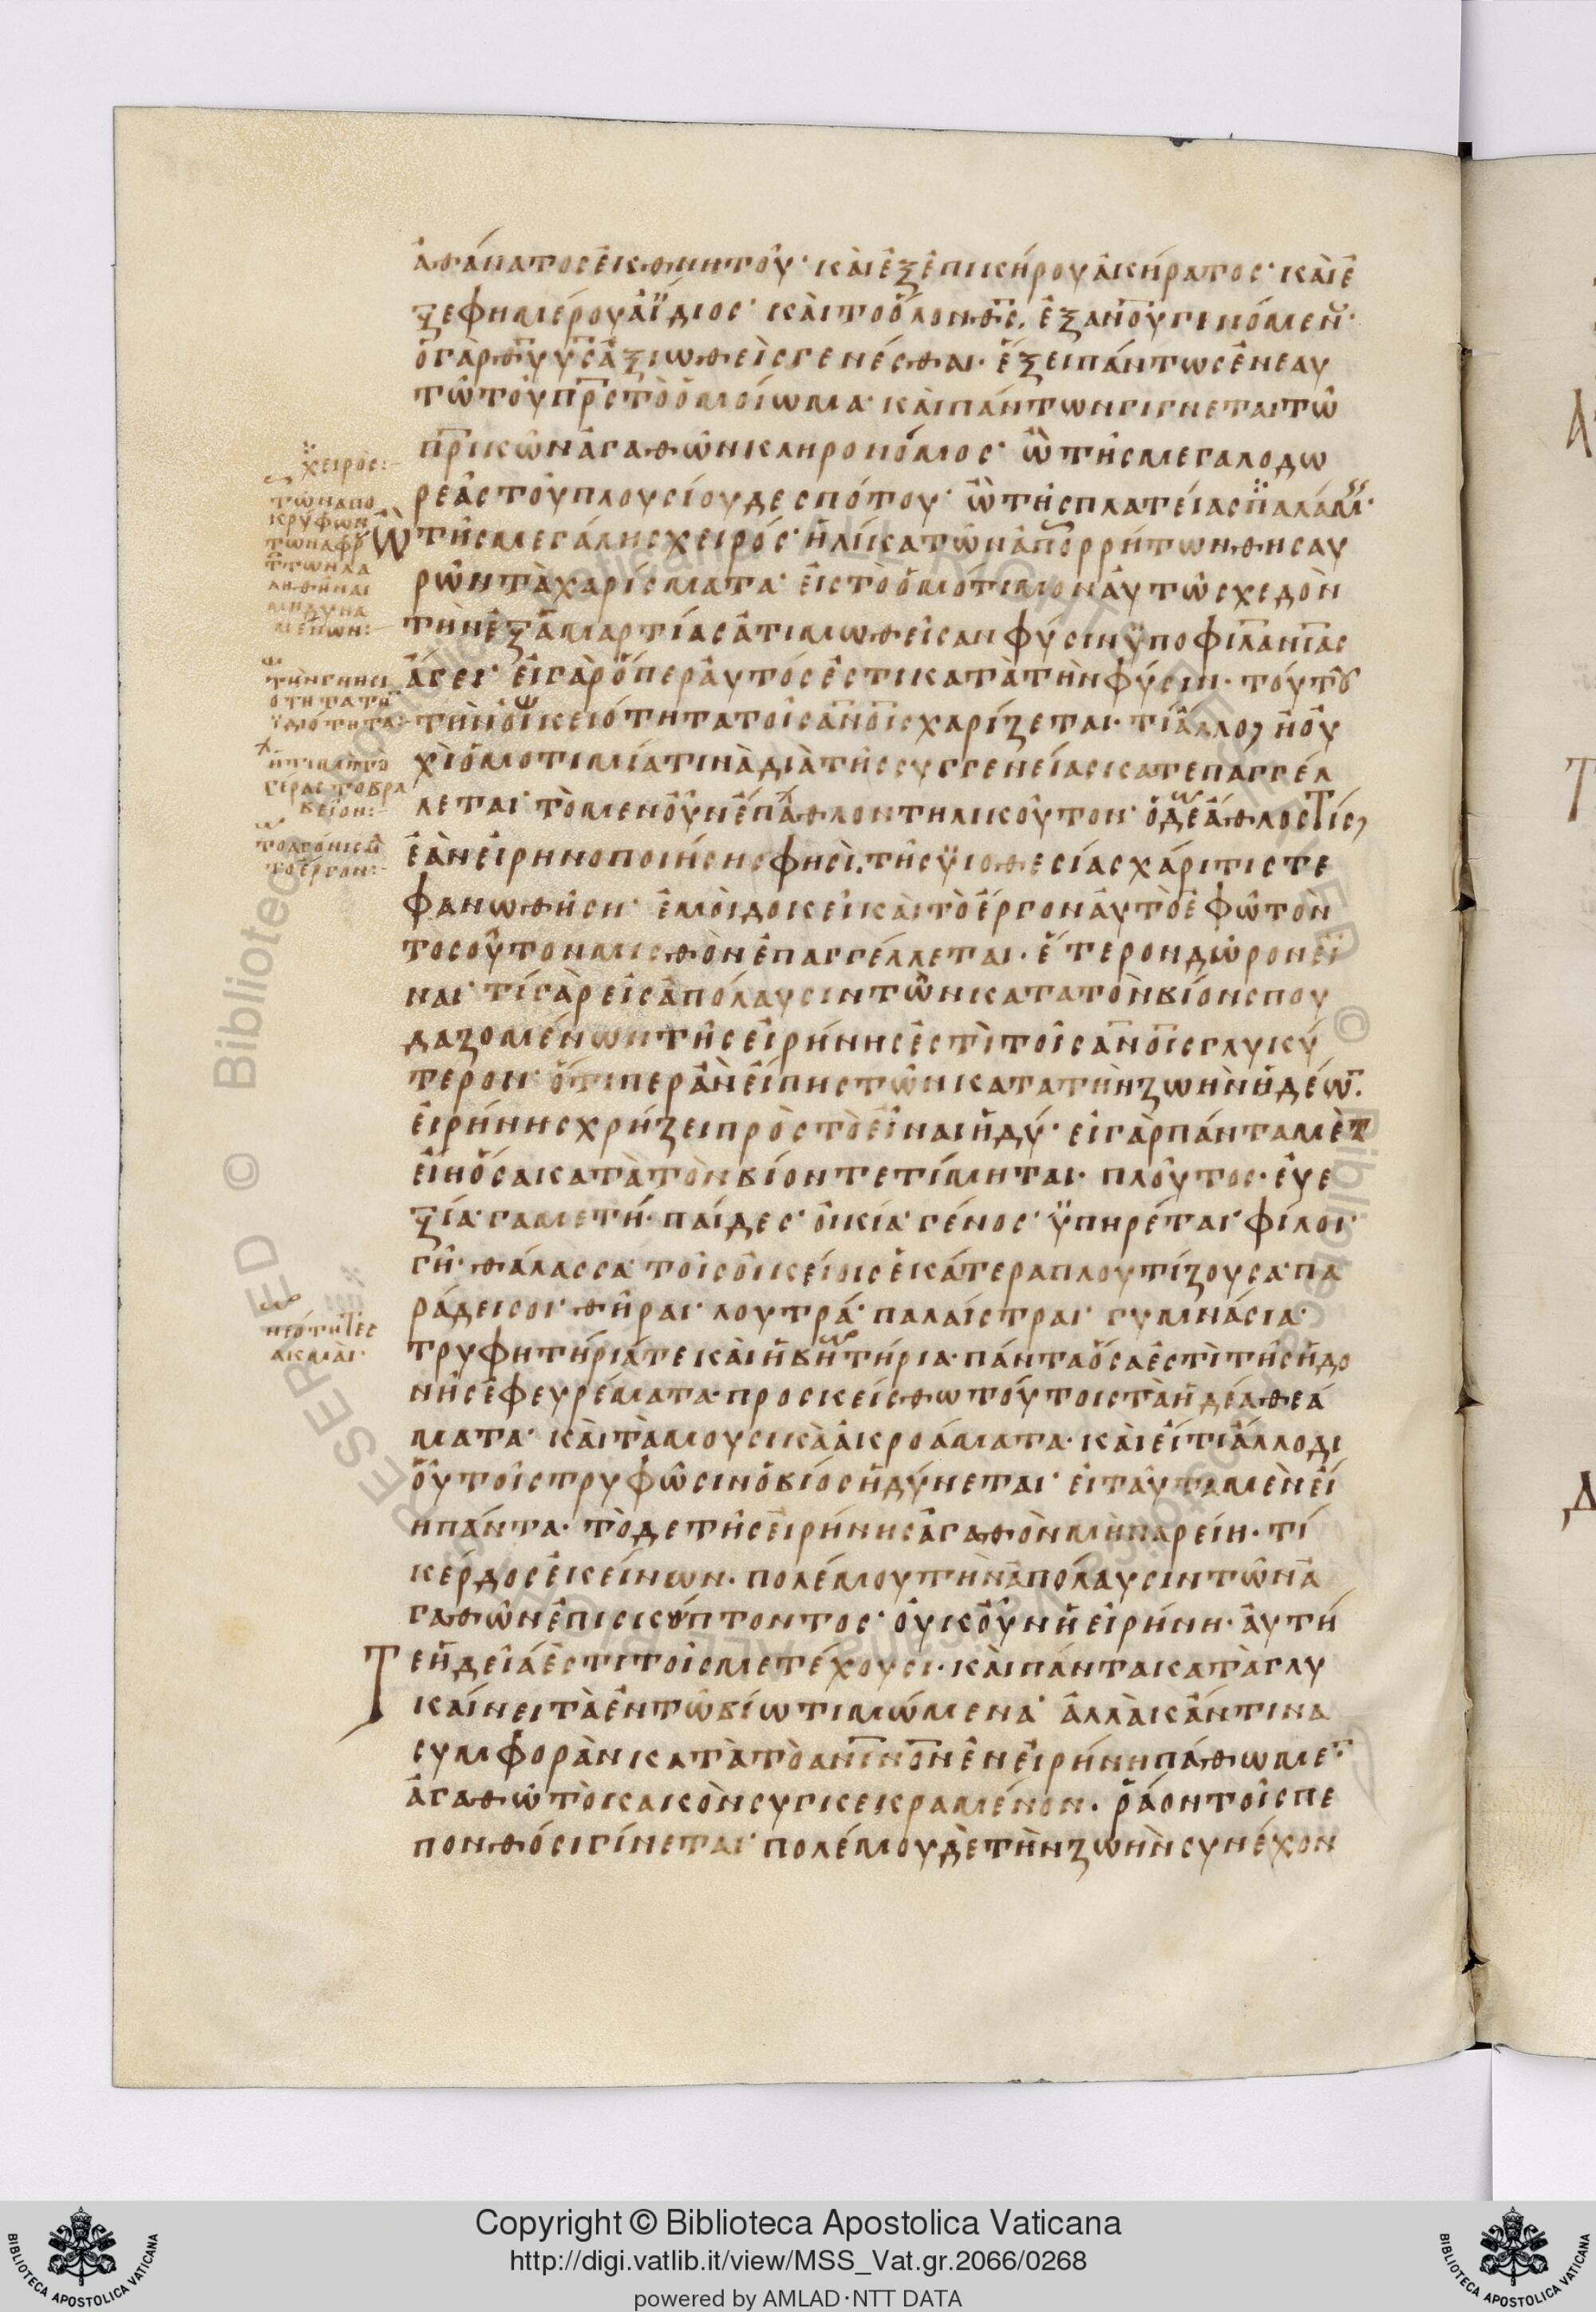 ἀθάνατος ἐκ θνητοῦ· καὶ ἐξ ἐπικήρου ἀκήρατος· καὶ ἐ
ξεφημέρου ἀΐδιος· καὶ τὸ ὅλον θς, ἐξ ανου γινόμεν·
ὁ γὰρ θυ υς ἀξιωθεὶς γενέσθαι· ἕξει πάντως ἐν ἑαυ
τῷ τοῦ πρς τὸ ὁμοίωμα· καὶ πάντων γίγνεται τῶ
πρικῶν ἀγαθῶν κληρονόμος· ὢ τῆς μεγαλοδω
ρεᾶς τοῦ πλουσίου δεσπότου· ὢ τῆς πλατείας παλάμ·
Ὢ τῆς μεγάλης χειρός· ἡλίκα τῶν ἀπορρήτων θησαυ
ρῶν τὰ χαρίσματα· εἰς τὸ ὁμότιμον αὐτῷ σχεδὸν
τὴν ἐξ ἁμαρτίας ἀτιμωθεῖσαν φύσιν ὑπο φιλανιας
ἄγει· εἰ γὰρ ὅπερ αὐτός ἐστι κατὰ τὴν φύσιν· τούτου
τὴν οἰκειότητα τοῖς ανοις χαρίζεται· τί ἄλλο, ἢ οὐ
χὶ ὁμοτιμίατινὰ διὰ τῆς συγγενείας κατεπαγγέλ
λεται· τὸ μεν οὖν ἔπαθλον τηλικοῦτον· ὁ δὲ ἆθλος τίς,
ἐὰν εἰρηνοποιήσῃς φησὶ. τῆς υἱοθεσίας χάριτι στε
φανωθήσῃ· ἐμοὶ δοκεῖ καὶ τὸ ἔργον αὐτὸ ἐφ ᾧ τὸν
τοσοῦτον μισθὸν ἐπαγγέλλεται· ἕτερον δῶρον εἶ
ναι· τί γὰρ εἰς ἀπόλαυσιν τῶν κατα τὸν βίον σπου
δαζομένων τῆς εἰρήνης ἐστὶ τοῖς ανοις γλυκύ
τερον· ὅτιπερ ἂν εἴπῃς τῶν κατα τὴν ζωὴν ἡδέω.
εἰρήνης χρῄζει πρὸς τὸ εἶναι ἡδύ· εἰ γὰρ πάντα μὲτ
εἴη ὅσα κατὰ τὸν βίον τετίμηται· πλοῦτος· εὐε
ξία· γαμετή· παίδες· οἰκία· γένος· ὑπηρέται· φίλοι·
γῆ· θάλασσα τοῖς οἰκείοις ἑκάτερα πλουτίζουσα· πα
ράδεισοι· θῆραι· λουτρά· παλαίστραι· γυμνάσια·
τρυφητήριά τε καὶ ἡβητήρια· πάντα ὅσα ἐστὶ τῆς ἡδο
νῆς ἐφευρέματα· προσκείσθω τούτοις τὰ ἡδέα θεά
ματα· καὶ τὰ μουσικὰ ἀκροάματα· καὶ εἴ τι ἄλλο δι
οὗ τοῖς τρυφῶσιν ὁ βίος ἡδύνεται· εἰ ταῦτα μὲν εἴ
η πάντα· τὸ δε τῆς εἰρήνης ἀγαθὸν μὴ παρείη· τί
κέρδος ἐκείνων· πολέμου τὴν ἀπόλαυσιν τῶν ἀ
γαθῶν ἐπισκόπτοντος· οὐκοῦν ἡ εἰρήνη· αὐτή
Τε ἡδεῖά ἐστι τοῖς μετέχουσι· καὶ πάντα κατὰ γλυ
καίνει τὰ ἐν τῷ βίω τιμώμενα· ἀλλὰ κἄν τινα
συμφορὰν κατὰ τὸ ανινον ἐν εἰρήνη πάθωμε·
ἀγαθῷ τὸ κακὸν συγκεκραμένον· ῥᾷον τοῖς πε
πονθόσι γίνεται· πολέμου δὲ τὴν ζωὴν συνέχον
χειρός:
τῶν ἀπο
κρύφων
λα
ληθῆναι
μὴ δυνα
μένων:
τὴν γνησι
ότητα τὴ
ἰδιότητα:
γέρας τὸ βρα
βεῖον:
τὸ ἔργον:
ἀκμαὶ·
Copyright © Biblioteca Apostolica Vaticana
http://digi.vatlib.it/view/MSS_Vat.gr.2066/0268
powered by AMLAD·NTT DATA
BIBLIOTECA APOSTOLICA VATICANA
BIBLIOTECA APOSTOLICA VATICANA